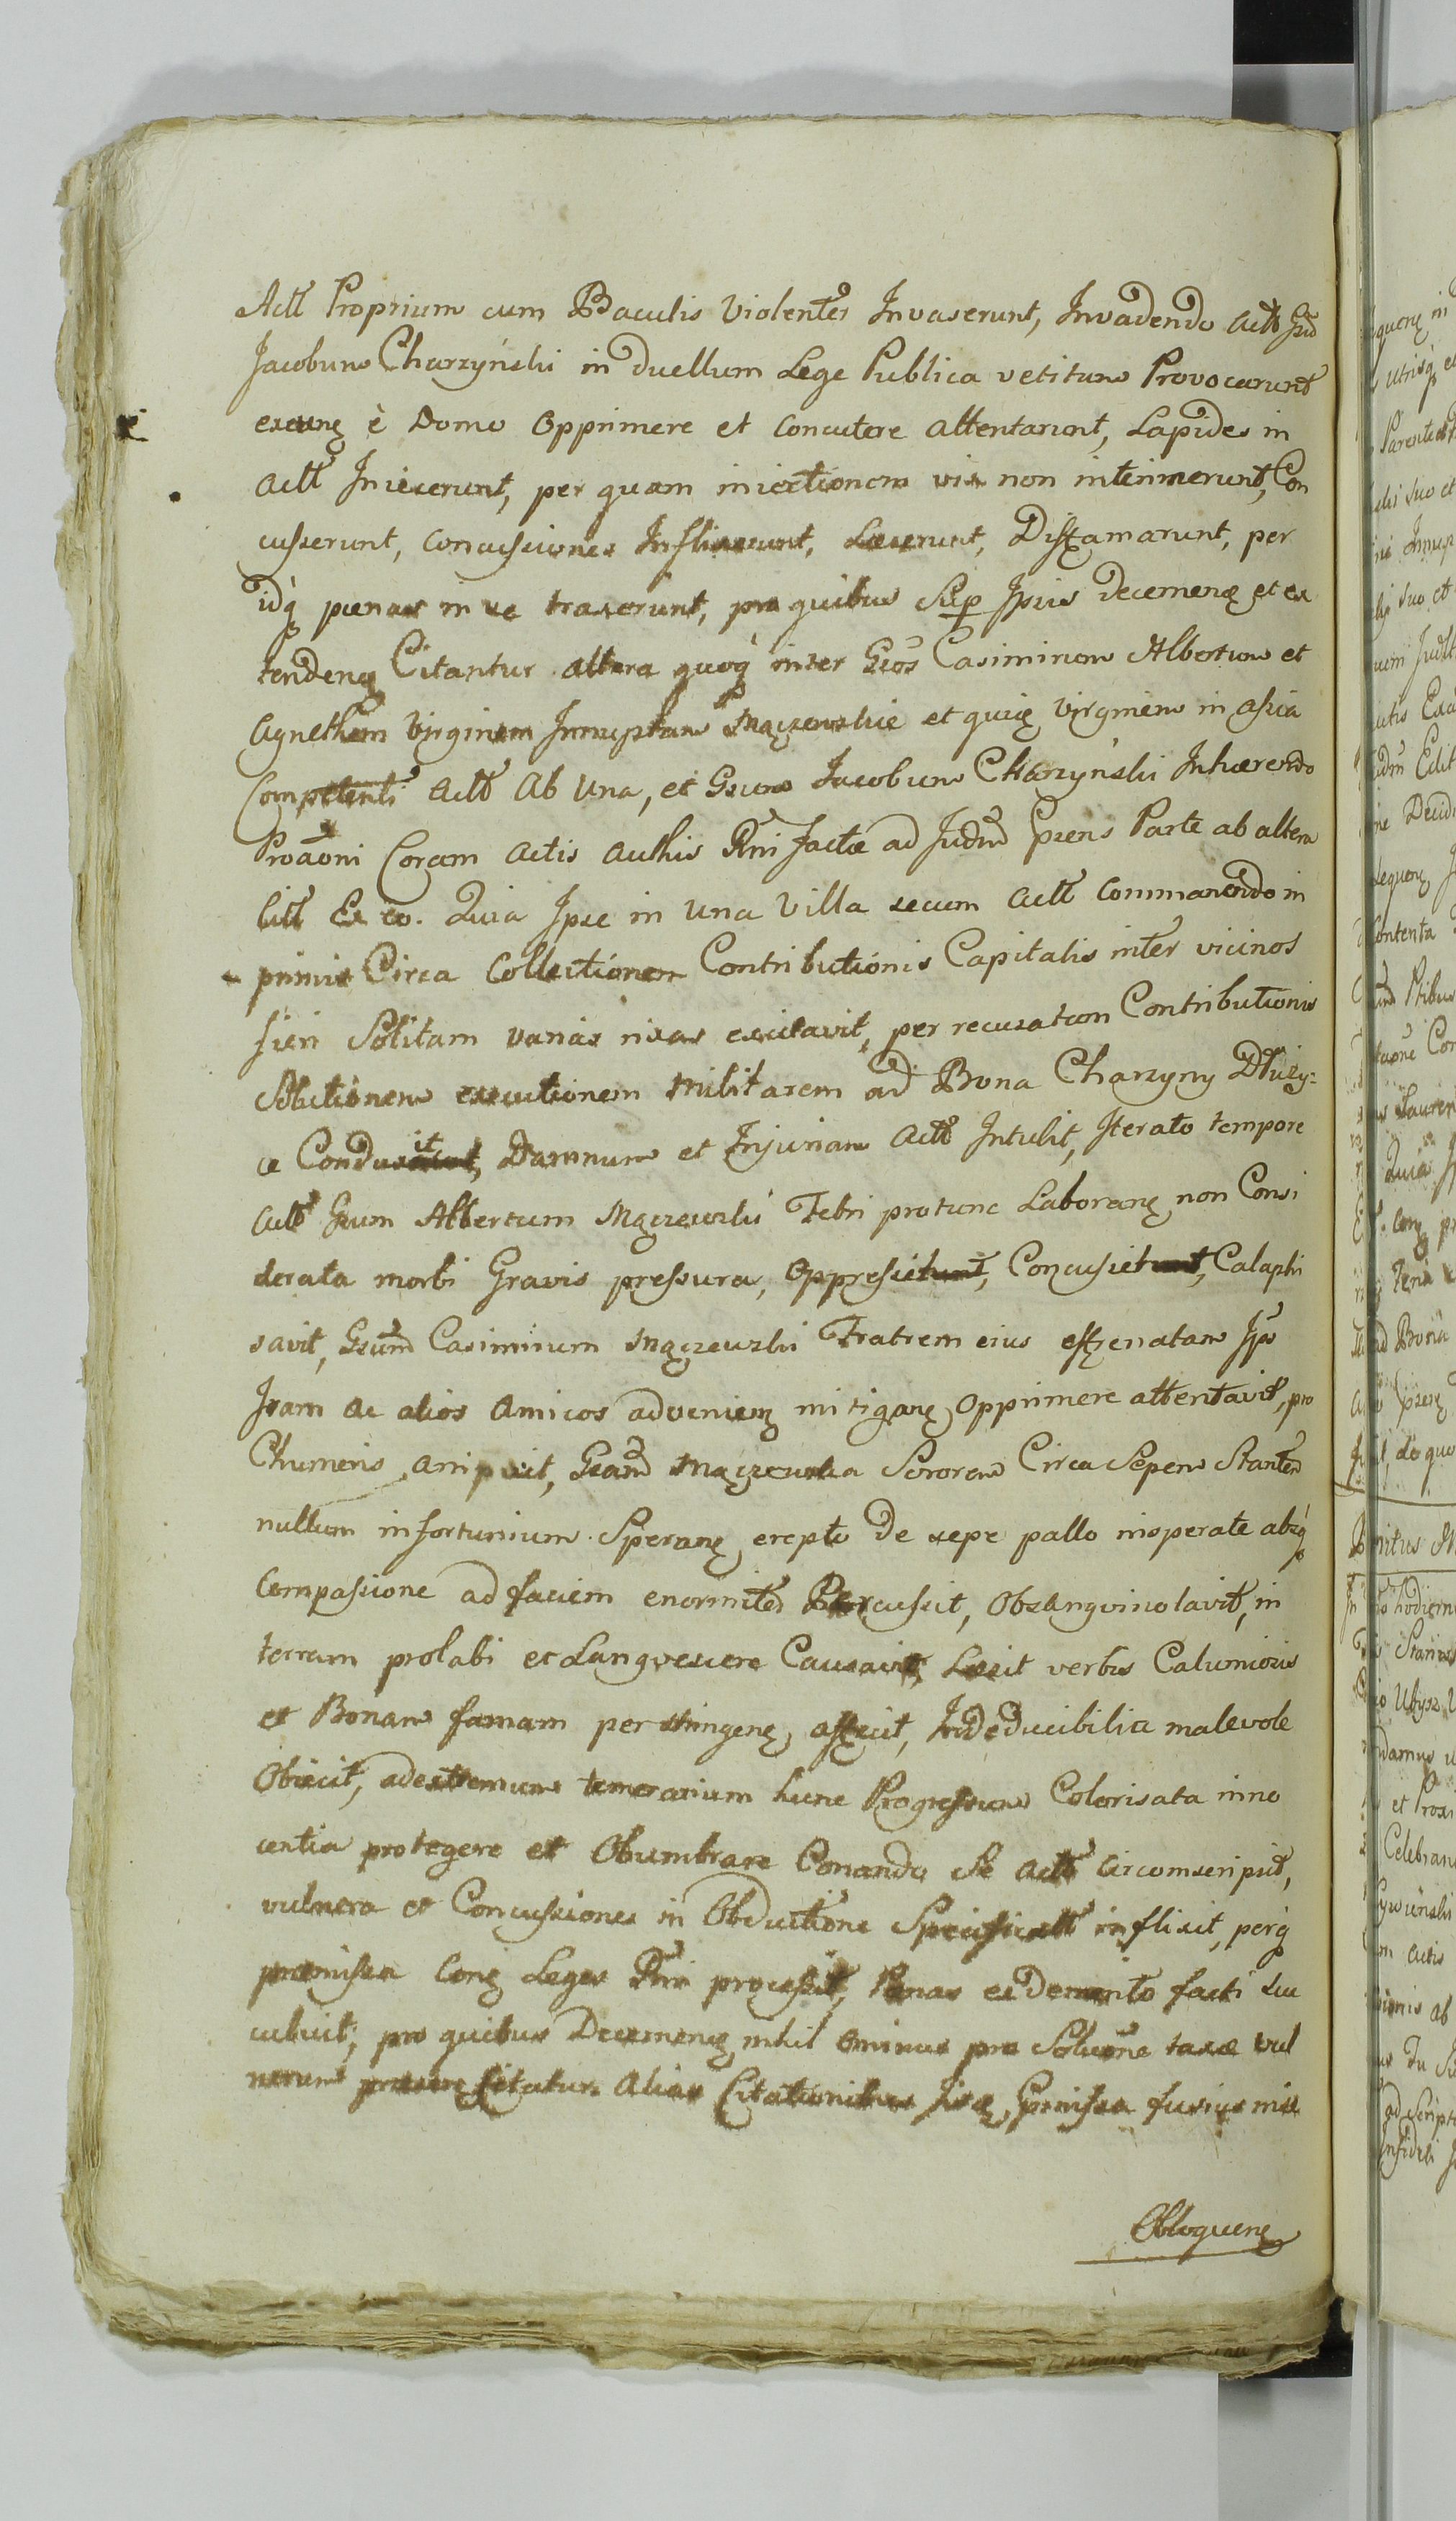 Actt Proprium cum Baculis Violenter Invaserunt, Invadendo Actt Gsd
Jacobum Charzyński in Duellum Lege Publica vetitum Provocarunt
exeunę è Domo Opprimere et Concutere attentarunt, Lapides in
Actt Iniecerunt, per quam iniectionem vix non interimerunt, Con
cusserunt, Concussiones Inflixerunt, Læserunt, Diffamarunt, per
idq̀ pænas in se traxerunt, pro quibus Sup Ipsis decernenę et ex
tendenę Citantur altera quoq̀ inter Gsos Casimirum Albertum et
Agnethem Virginem Innuptam Mączewskie et quię Virginem in Assia
Competenti Actt Ab Una, et Gsum Jacobum Charzyński Inhærendo
Proaoni Coram Actis Authis Rni factæ ad Judm Prens Parte ab altera
Citt Ex eo. Quia Ipse in Una Villa secum Actt Commanendo in
primis Circa Collectionem Contributionis Capitalis inter vicinos
fieri Solitam varias rixas excitavit, per recusatam Contributionis
Solutionem executionem Militarem ad Bona Charzyny Dłuży-
ce Conduxit, Damnum et Injuriam Actt Intulit, Iterato tempore
Actt Gsum Albertum Mączewski Febri protunc Laboranę non Consi
derata morbi Gravis pressura, Oppressit, Concussit, Calaphi
savit, Gsum Casimirum Mączewski Fratrem eius effrenatam Ips
Iram ac alios Amicos advenienę mitiganę Opprimere attentavit, pro
Chumeris arripuit, Gsam Mączewska Sororem Circa Sepem Stantem
nullum infortunium Speranę, erepto De sepe pallo insperate absq̀
Compassione ad faciem enormiter Percussit, Obsangvinolavit, in
terram prolabi et Langvescere Causavit, Læsit verbis Calumiosis
et Bonam famam perstringenę, affecit, Indeducibilia malevole
Obiecit, ad extremum temerarium hunc Progressum Colorisata inno
centia protegere et Obumbrare Conando Se Actt circumscripsit,
vulnera et Concussiones in Obductione Specificatt inflixit, perq̀
præmissa Conę Leges Rni processit, Pænas ex Demerito facti suc
cubuit, pro quibus Decernenę nihil Ominus pro Soluone taxæ vul
nerum Citatur. Alias Citationibus fusius mse
Obloquenę